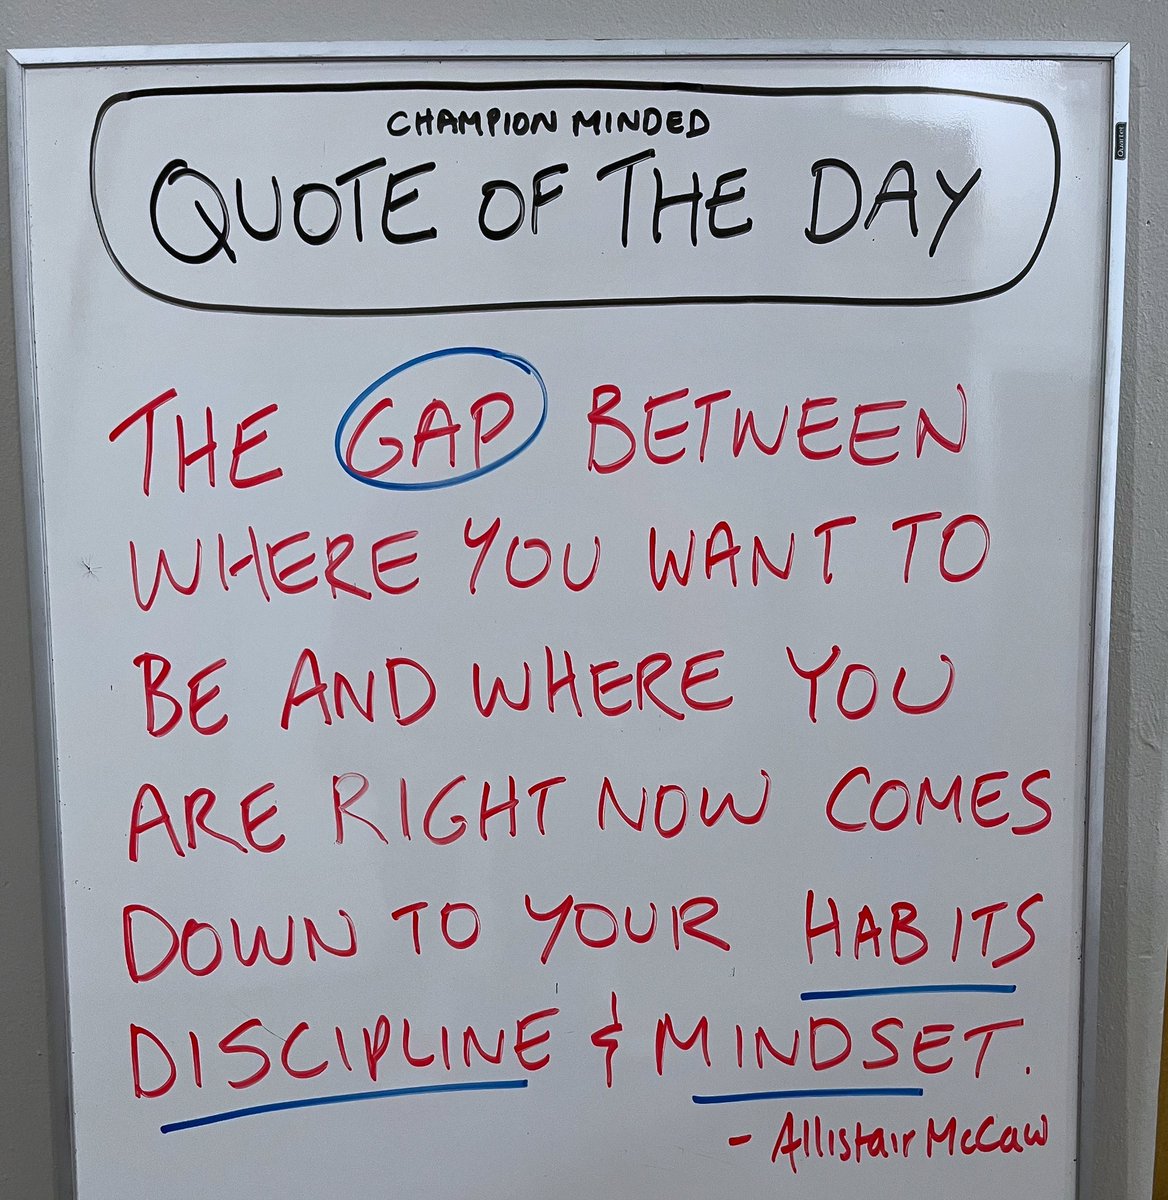 CHAMPION MINDED
QUOTE OF THE DAY
Quartet
THE GAP BETWEEN
WHERE YOU WANT TO
BE AND WHERE YOU
ARE RIGHT NOW COMES
DOWN TO YOUR HABITS
DISCIPLINE & MINDSET.
- Allistair McCaw